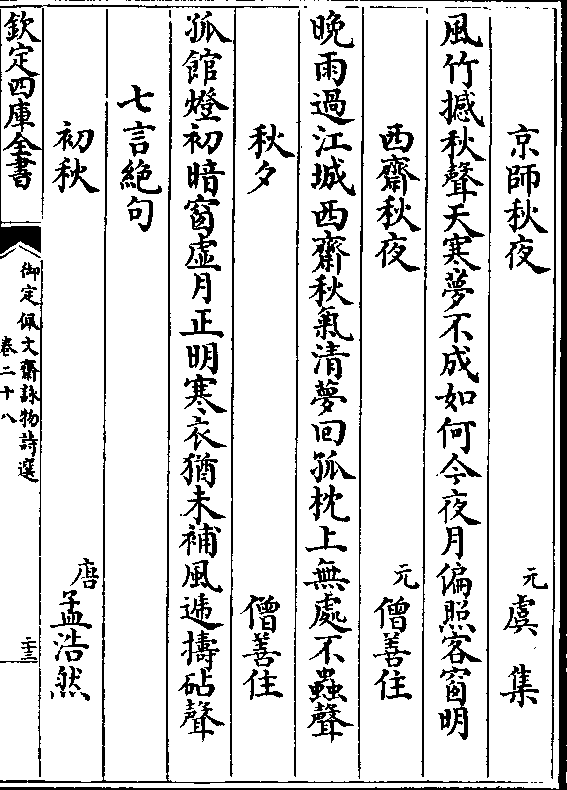 京師秋夜　元虞集
風竹撼秋聲天寒夢不成如何今夜月偏照客窗明
西齋秋夜　元僧善住
晚雨過江城西齋秋氣清夢回孤枕上無處不蟲聲
秋夕　僧善住
孤館燈初暗窗虛月正明寒衣猶未補風遞擣砧聲
七言絶句
初秋　唐孟浩然
欽定四庫全書
御定佩文齋詠物詩選
卷二十八
二十三